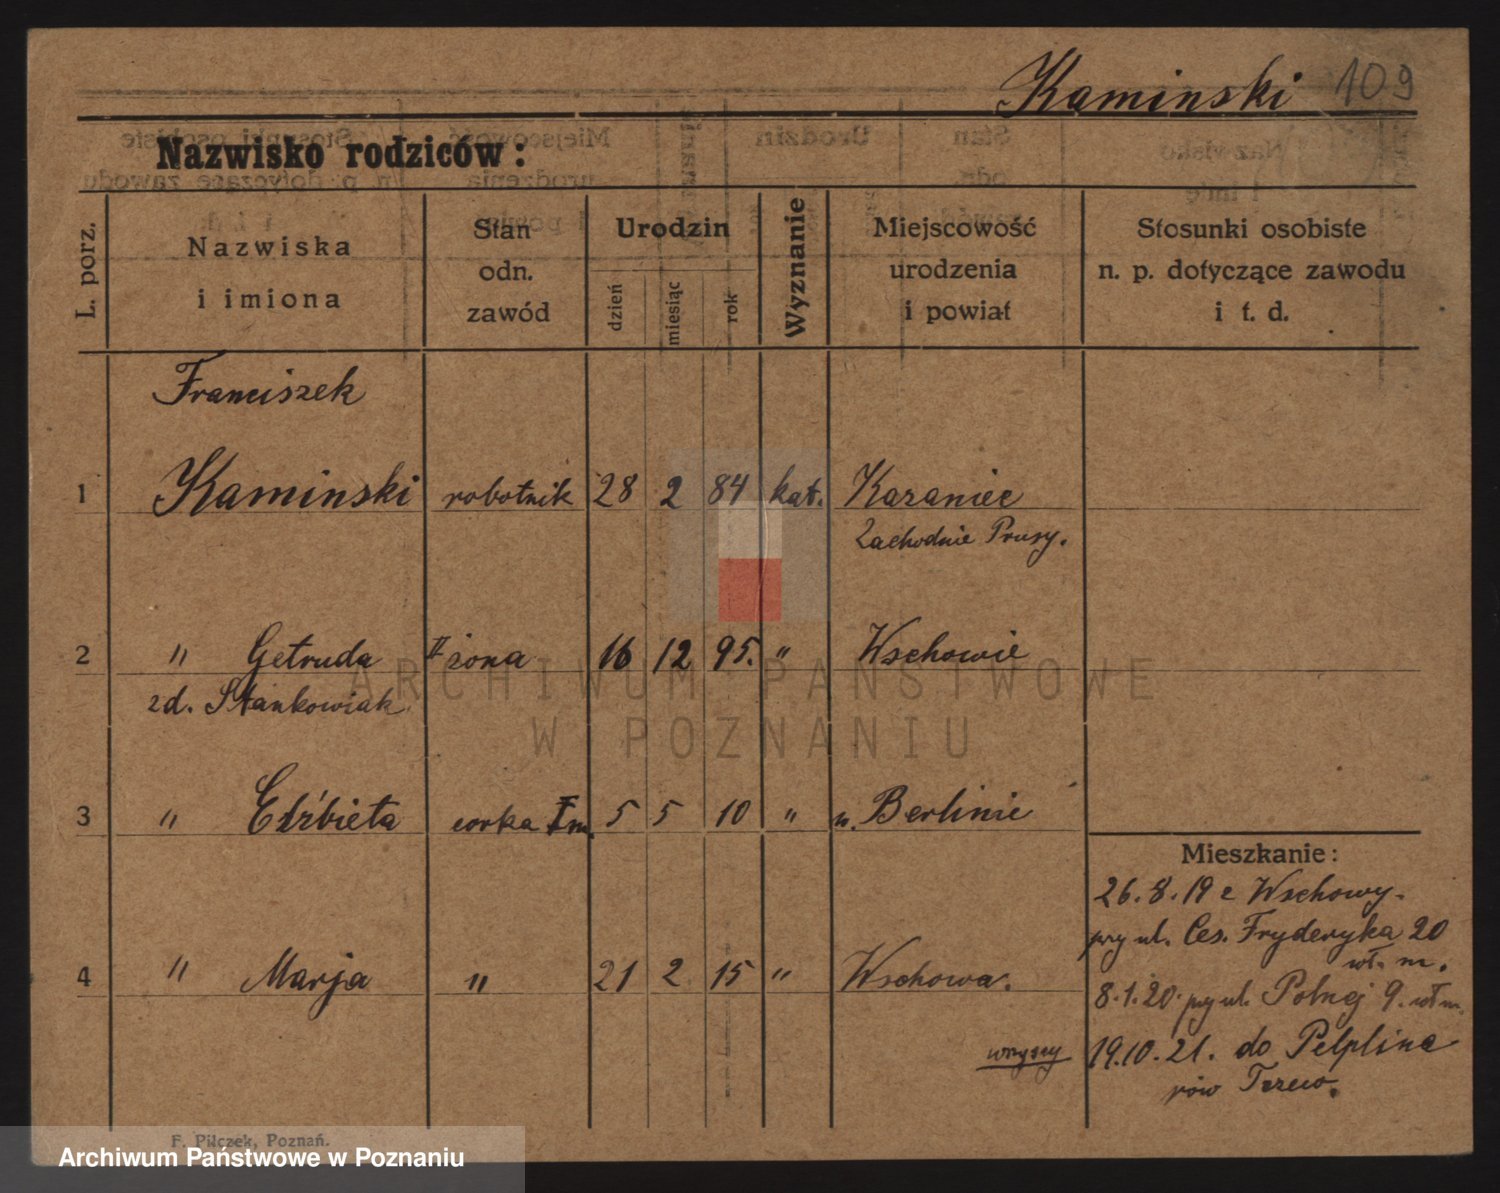 Kaminski 109
Nazwisko rodziców:
L. porz.
Nazwiska i imiona
Stan odn. zawód
Urodzin
dzień
miesiąc
rok
Wyznanie
Miejscowość urodzenia i powiat
Stosunki osobiste n. p. dotyczące zawodu i t. d.
Franciszek
1 Kaminski robotnik 28 2 84 kat. Kazaniec
Zachodnie Prusy.
2 " Getruda II żona 16 12 95. " Wschowie
zd. Stankowiak
3 " Elżbieta corka I m. 5 5 10 " w. Berlinie
4 " Marja " 21 2 15 " Wschowa.
Mieszkanie:
26.8.19 z Wschowy.
przy ul. Ces. Fryderyka 20
wł. m.
8.1.20. przy ul. Polnej 9. wł m.
wszyscy 19.10.21. do Pelplina
pow Tczew.
F. Pilczek, Poznań.
ARCHIWUM PAŃSTWOWE
W POZNANIU
Archiwum Państwowe w Poznaniu